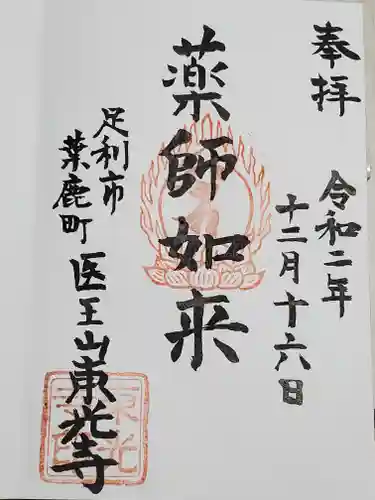 奉拝
令和二年
十二月十六日
薬師如来
足利市
葉鹿町
医王山東光寺